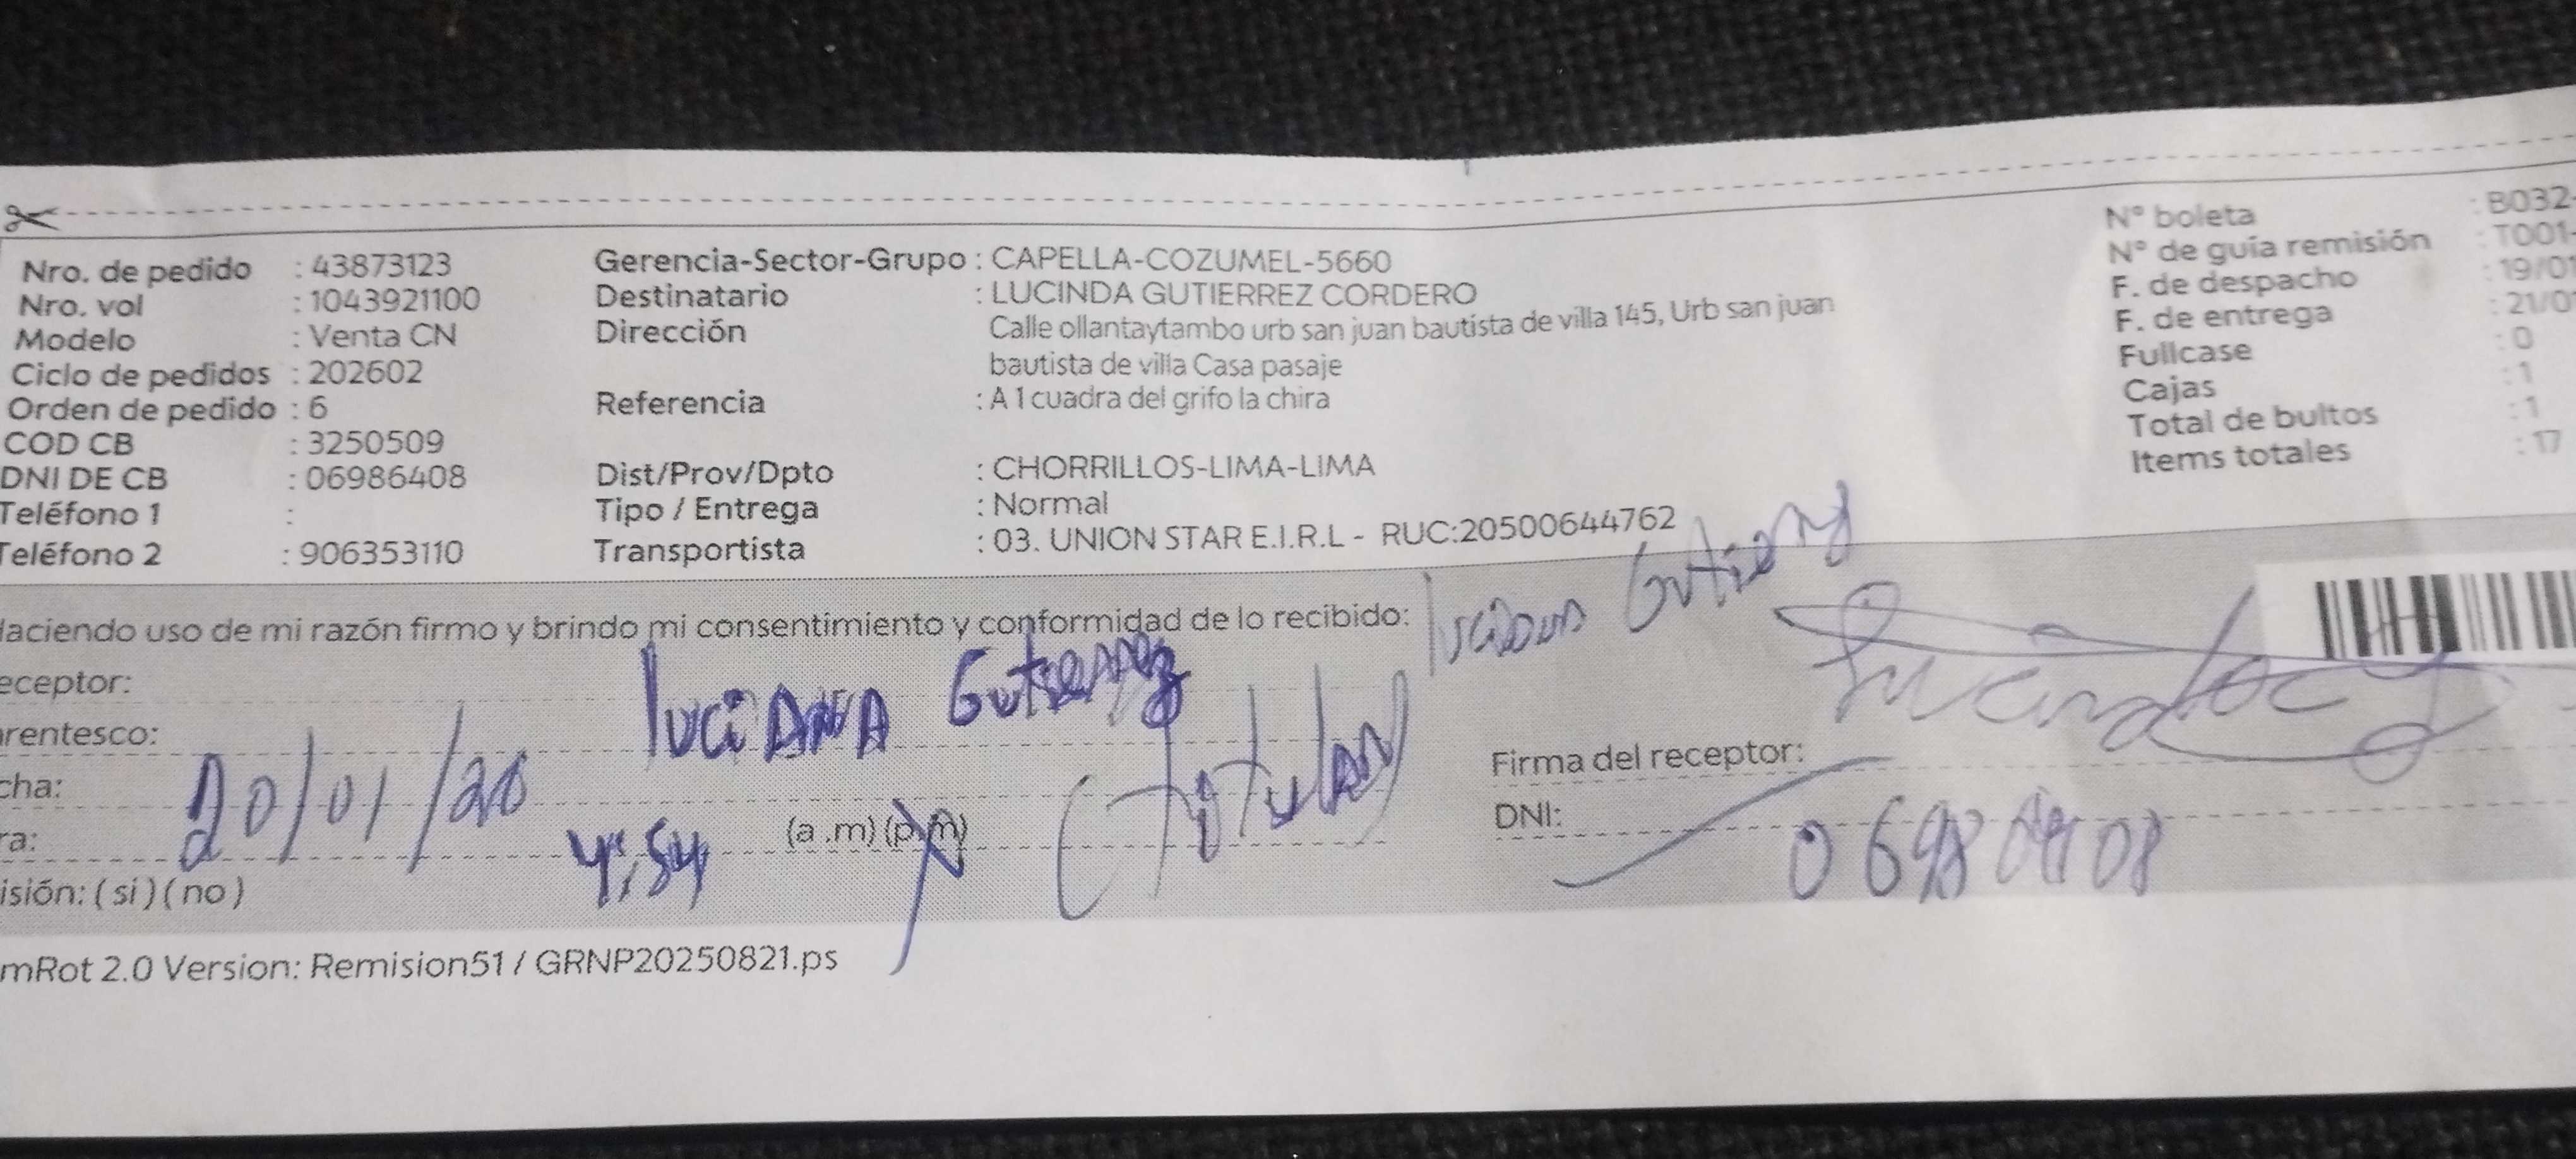 Nro. de pedido : 43873123
Nro. vol : 1043921100
Modelo : Venta CN
Ciclo de pedidos : 202602
Orden de pedido : 6
COD CB : 3250509
DNI DE CB : 06986408
Teléfono 1 :
Teléfono 2 : 906353110
Gerencia-Sector-Grupo : CAPELLA-COZUMEL-5660
Destinatario : LUCINDA GUTIERREZ CORDERO
Dirección Calle ollantaytambo urb san juan bautista de villa 145, Urb san juan
bautista de villa Casa pasaje
Referencia : A 1 cuadra del grifo la chira
Dist/Prov/Dpto : CHORRILLOS-LIMA-LIMA
Tipo / Entrega : Normal
Transportista : 03. UNION STAR E.I.R.L - RUC:20500644762
N° boleta : B032-
N° de guía remisión : T001-
F. de despacho : 19/01
F. de entrega : 21/0
Fullcase : 0
Cajas : 1
Total de bultos : 1
Items totales : 17
Haciendo uso de mi razón firmo y brindo mi consentimiento y conformidad de lo recibido:
Gutierrez
eceptor:
Gutierrez
rentesco:
cha: 20/01/26
ra: 4:54 (a .m) (p.m) (Titular)
isión: ( si ) ( no )
Firma del receptor:
DNI:
mRot 2.0 Version: Remision51 / GRNP20250821.ps